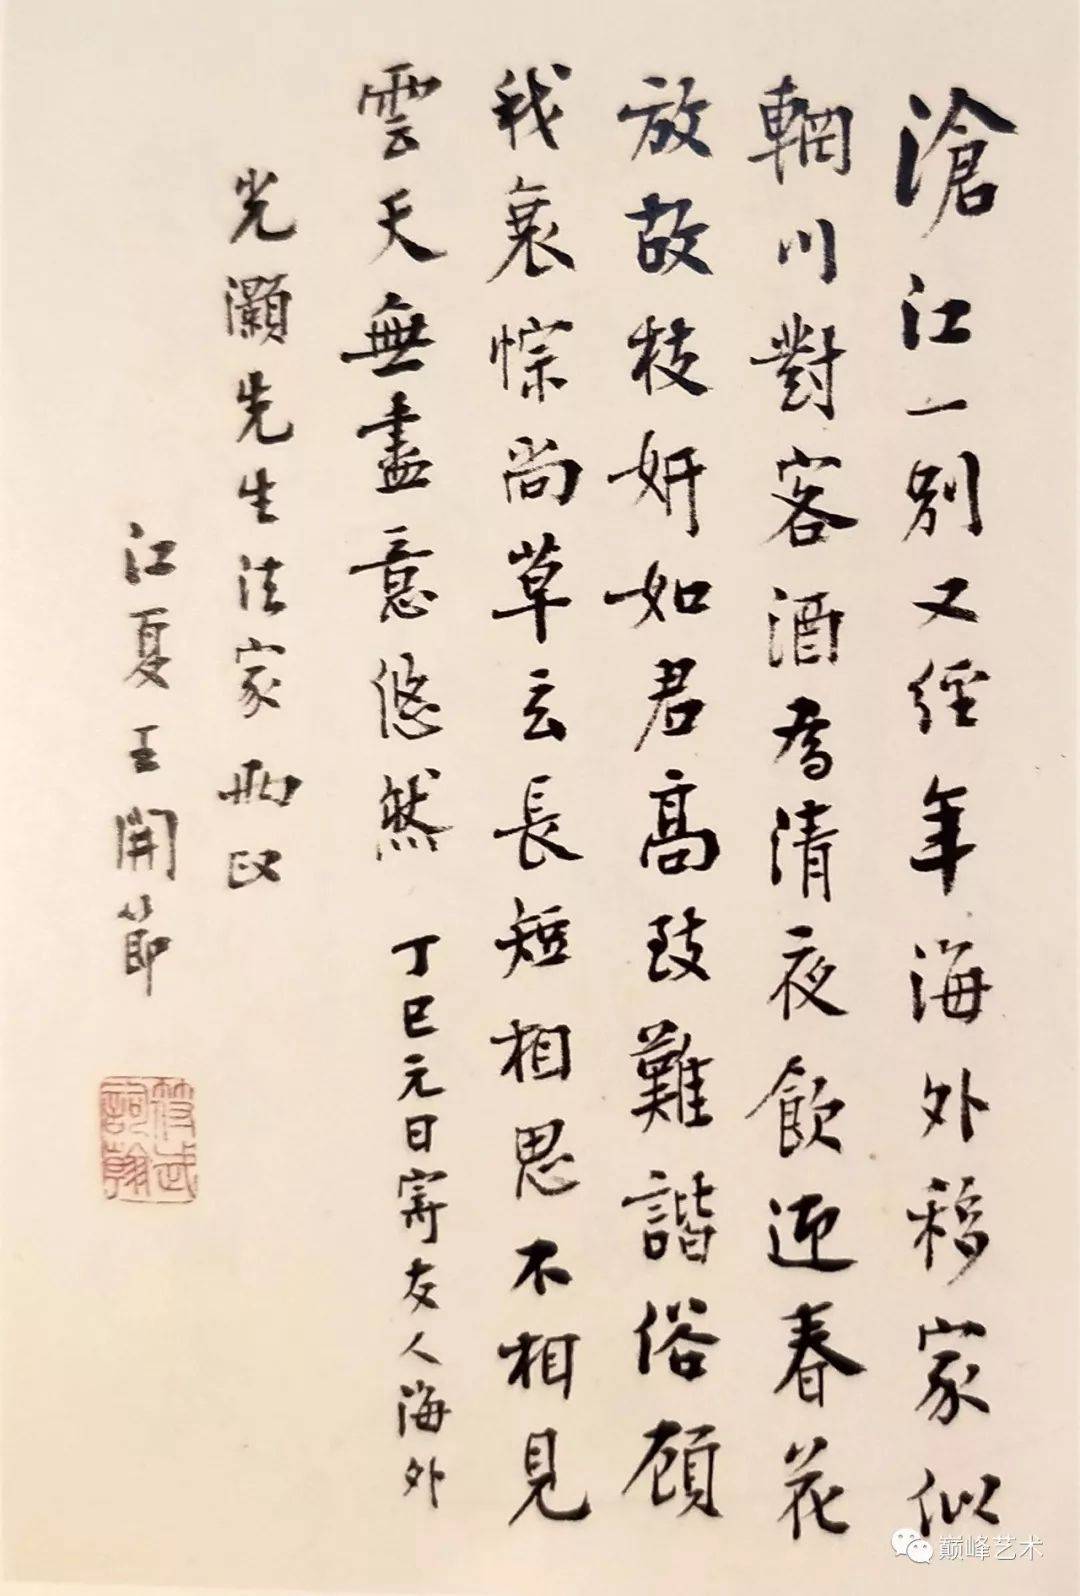 滄江一别又經年海外移家似
輞川對客酒為清夜飲迎春花
放故枝妍如君高致難諧俗顧
我衰悰尚草玄長短相思不相見
雲天無盡意悠然 丁巳元日寄友人海外
光灝先生法家
江夏王開節
詞翰
巅峰艺术